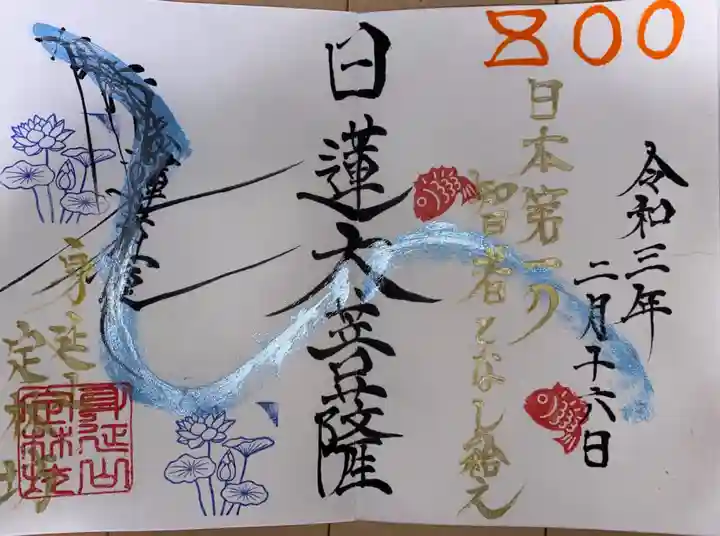 800
令和三年
二月十六日
日本第一の
智者となし給え
日蓮大菩薩
身延山
定林坊
身延山
定林坊